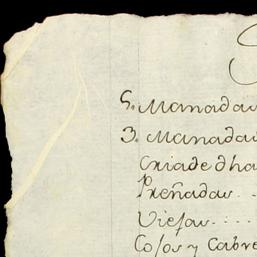 5. Manadas
3. Manadas
Criade dha
Preñadas..
Viejas....
Cojos y Cabre